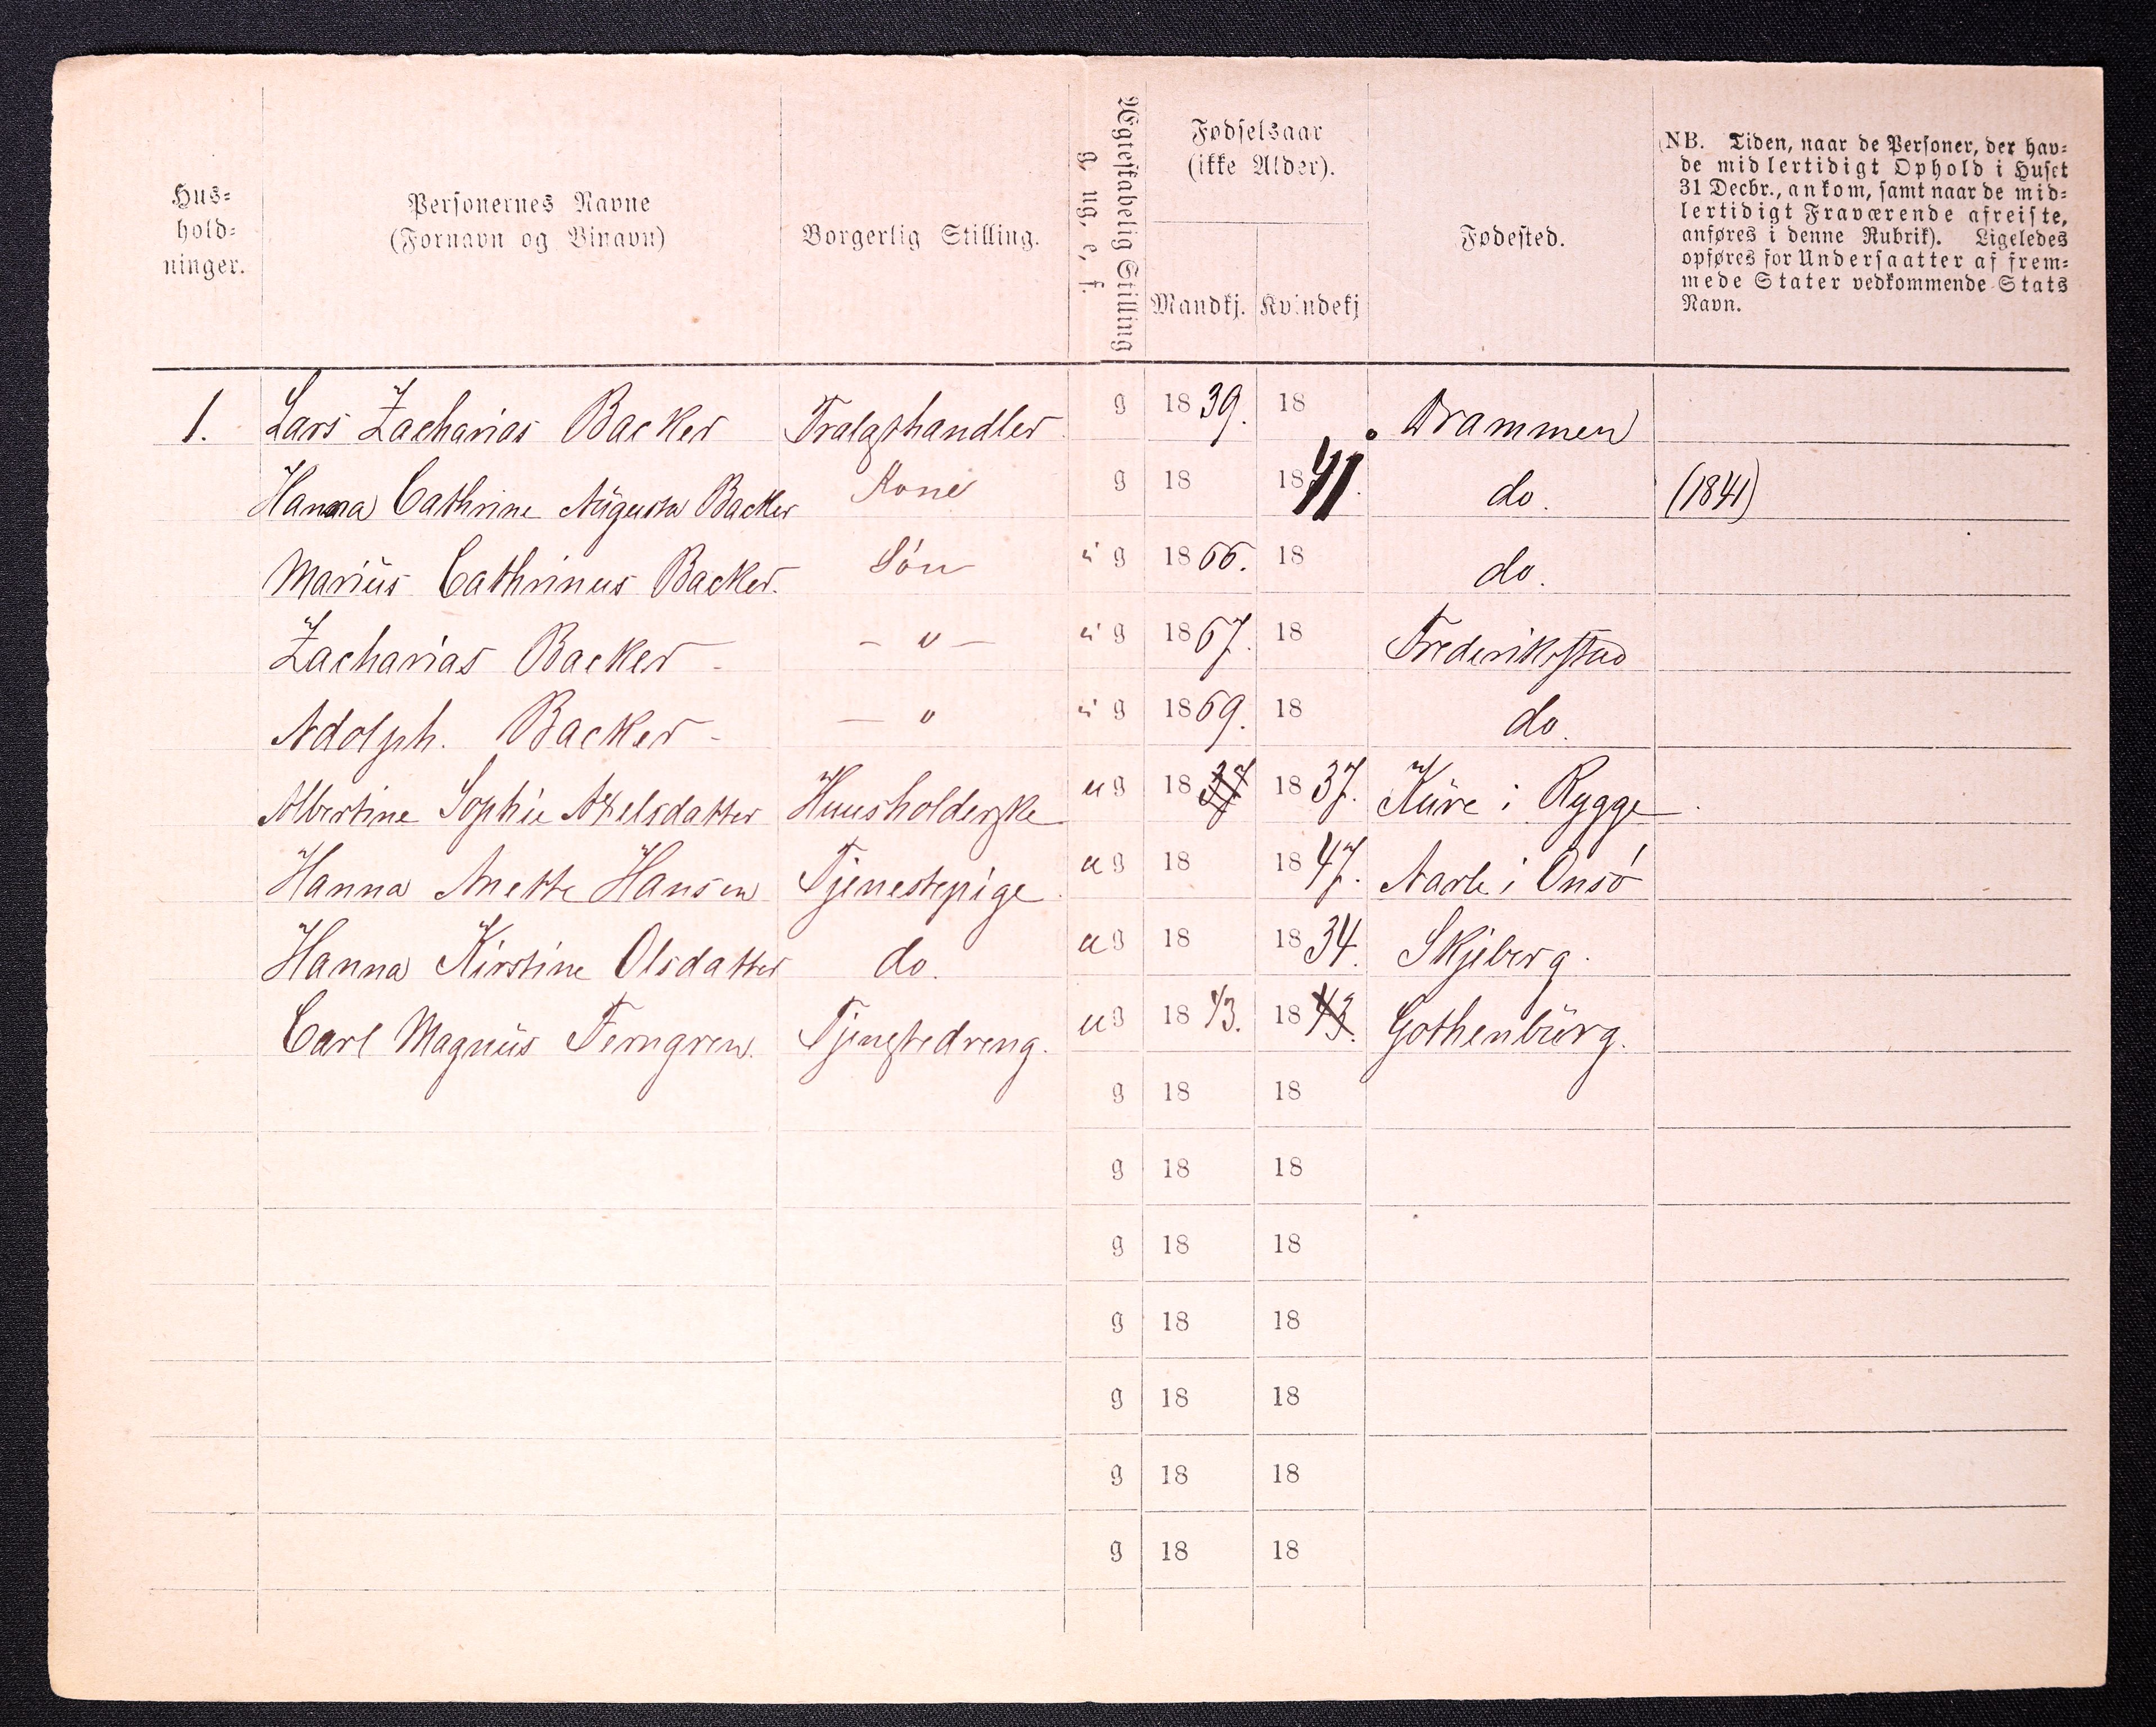 Hus-
hold-
ninger.
Personernes Navne
(Fornavn og Binavn)
Borgerlig Stilling.
Ægteskabelig Stilling
g, ug, e, f.
Fødselsaar
(ikke Alder).
Mandkj. Kvindekj
Fødested.
(NB. Tiden, naar de Personer, der hav-
de midlertidigt Ophold i Huset
31 Decbr., ankom, samt naar de mid-
lertidigt Fraværende afreiste,
anføres i denne Rubrik). Ligeledes
opføres for Undersaatter af frem-
mede Stater vedkommende Stats
Navn.
1. Lars Zacharias Backer Tralasthandler g 1839. 18 Drammen
Hanna Cathrine Augusta Backer Kone g 18 1841. do. (1841)
Marius Cathrinus Backer. Søn g 1866. 18 do.
Zacharias Backer - — " — g 1867. 18 Frederikstad
Adolph. Backer - — " g 1869. 18 do.
Albertine Sophie Axelsdatter Huusholderske ug 1837 1837. Kure i Rygge
Hanna Anette Hansen Tjenestepige. ug 18 1847. i Onsø
Hanna Kirstine Olsdatter do. ug 18 1834. Skjeberg.
Carl Magnus Ferngren. Tjenstedreng. ug 1843. 1843. Gothenburg.
g 18 18
g 18 18
g 18 18
g 18 18
g 18 18
g 18 18
g 18 18